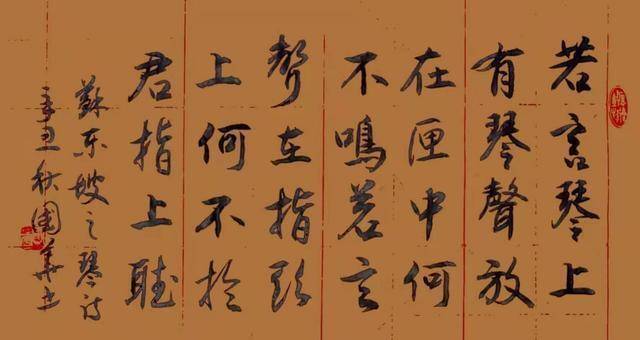 若言琴上
有琴聲放
在匣中何
不鳴若言
聲在指頭
上何不於
君指上聽
蘇東坡之琴詩
辛丑秋國華书